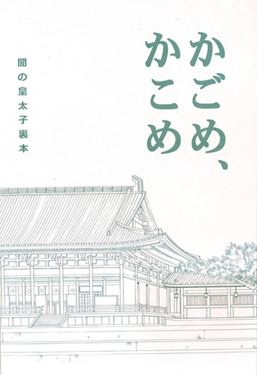 かごめ、
かこめ
闇の皇太子裏本